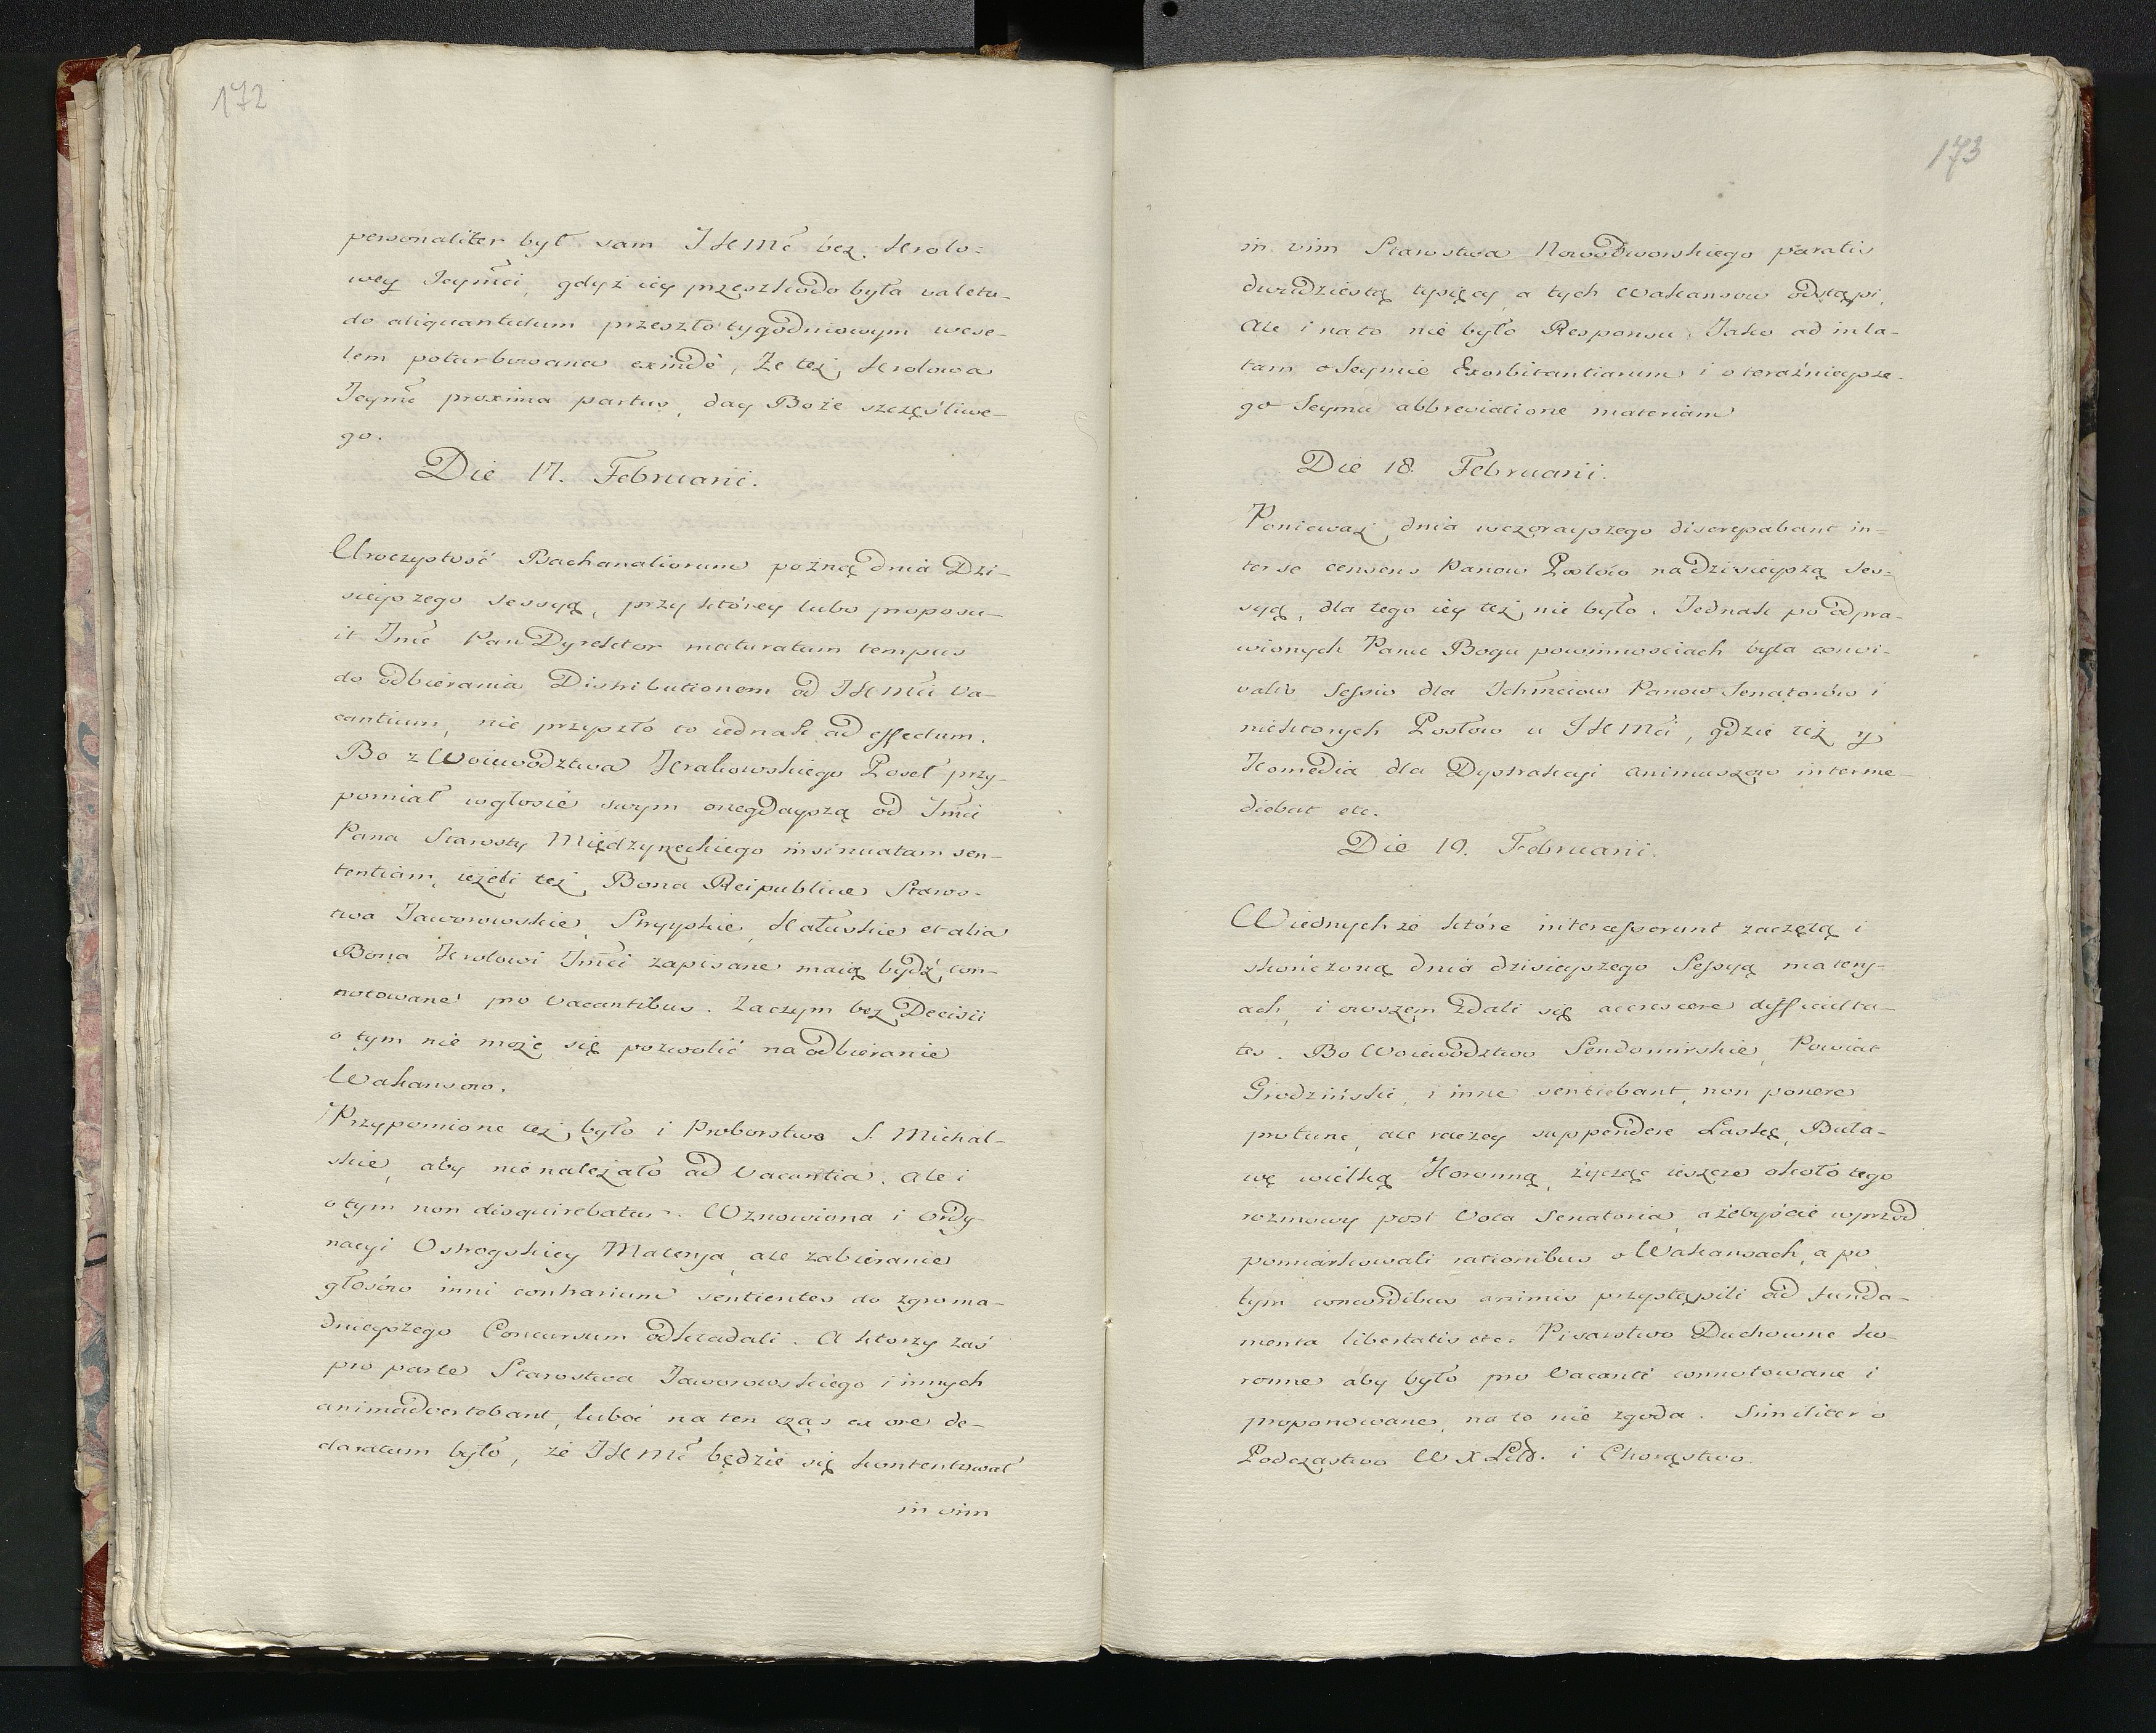 172
personaliter był sam JKMć bez Krolo=
wey Jeymći, gdyż iey przeszkodo była valetu-
do aliquantulum przeszło tygodniowym wese-
lem poturbowana exindè, Że też Krolowa
Jeymć proxima partus, day Boże szczęśliwe-
go.
Die 17. Februarii.
Uroczystość Bachanaliorum poźną dnia Dzi-
sieyszego sessyą, przy którey lubo proposu-
it Jmć Pan Dyrektor maturatum tempus
do odbierania Distributionem od JKMći va-
cantium, nie przyszło to iednak ad effectum.
Bo z Woiewodztwa Krakowskiego Poseł przy-
pomiał w głosie swym onegdayszą od Jmći
Pana Starosty Międzyrzeckiego insinuatam sen-
tentiam, ieżeli też Bona Reipublicae Staros-
twa Jaworowskie, Stryyskie, Kałuskie et alia
Bona Krolowi Jmći zapisane maią bydź con-
notowane pro vacantibus. Zaczym bez Decisii
o tym nie może się pozwolić na odbieranie
Wakansow.
Przypomione też było i Proborstwo S. Michal-
skie, aby nie należało ad vacantia. Ale i
o tym non disquirebatur. Wznowiona i Ordy
nacyi Ostrogskiey Materya, ale zabieranie
głosów inni contrarium sentientes do zgroma-
dnieyszego Concursum odkładali. A ktorzy zaś
pro parte Starostwa Jaworowskiego i innych
animadvertebant, luboć na ten czas ex ore de-
claratum było, że JKMć będzie się kontentował
in vim
173
in vim Starostwa Nowodworskiego paratis
dwudziestą tysięcy, a tych Wakansow odstąpi,
Ale i na to nie było Responsu. Jako ad inla-
tam o Seymie Exorbitantiarum i o teraźnieysze-
go Seymu abbreviatione materiam
Die 18. Februarii.
Ponieważ dnia wczorayszego discrepabant in-
ter se censens Panow Posłów na dzisieyszą ses-
syą, dla tego iey też nie było. Jednak po odpra-
wionych Panu Bogu powinnościach była convi-
valis sessio dla Ichmciow Panow Senatorów i
niektorych Posłow u JKMći, gdzie też y
Komedia dla Dystrakcyi animuszow interme-
diebat etc.
Die 19. Februarii.
W iednychże które intercesserunt zaczętą i
skończoną dnia dzisieyszego Sessyą matery-
ach, i owszem zdali się accrescere difficulta-
tes. Bo Woiewodztwo Sendomirskie, Powiat
Grodziński, i inne sentiebant, non ponere
pro tunc, ale raczey suppendere Laskę, Buła-
wę wielką Koronną, życząc ieszcze około tego
rozmowy post Vota Senatoria, ażebyście wprzod
pomiarkowali rationibus o Wakansach, a po
tym concordibus animis przystąpili ad funda-
menta libertatis etc. Pisarstwo Duchowne ko-
ronne aby było pro Vacanti connotowane i
proponowane, na to nie zgoda. Similiter o
Podczastwo W X Litt. i Chorąstwo.